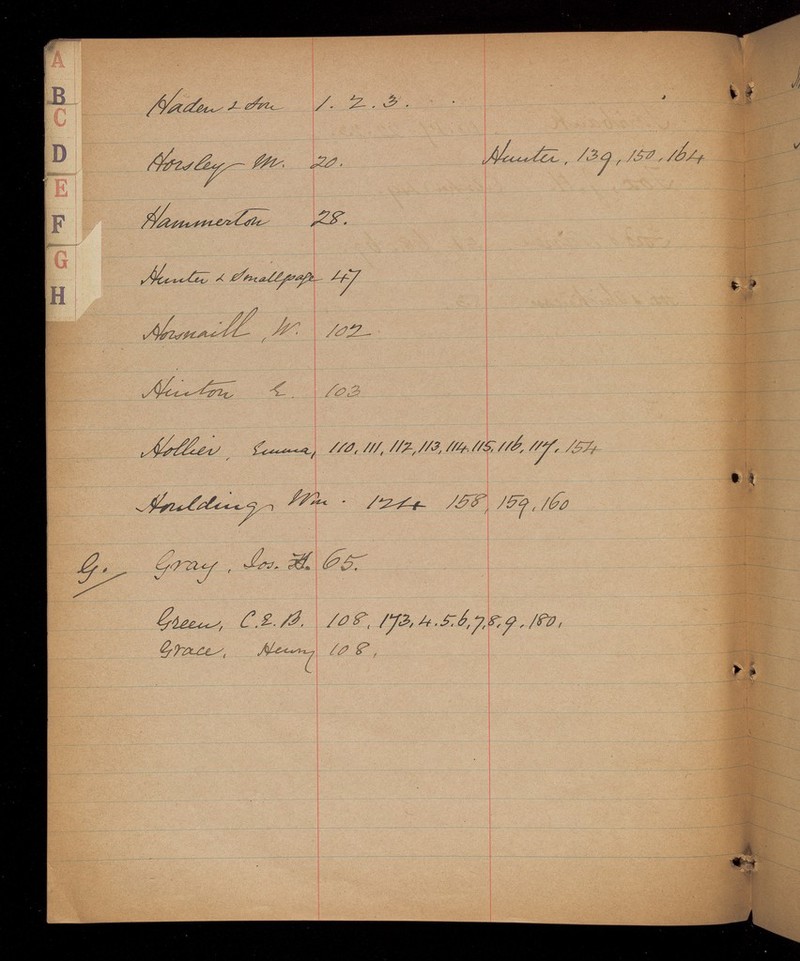 A
B
C
D
E
F
G
H
Haden & Son 1. 2. 3.
Horsley M. 20. Hunter, 139, 150, 164
Hammerton 28.
Hunter & Smallpage 47
Horsnaill, W. 102
Hinton E. 103
Hollier, Emma, 110, 111, 112, 113, 114, 115, 116, 117, 154
Houlding, Wm. 124 158, 159, 160
G. Gray, Jos. H. 65.
Green, C. E. B. 108, 173, 4. 5. 6, 7, 8, 9, 180,
Grace, Henry 108,